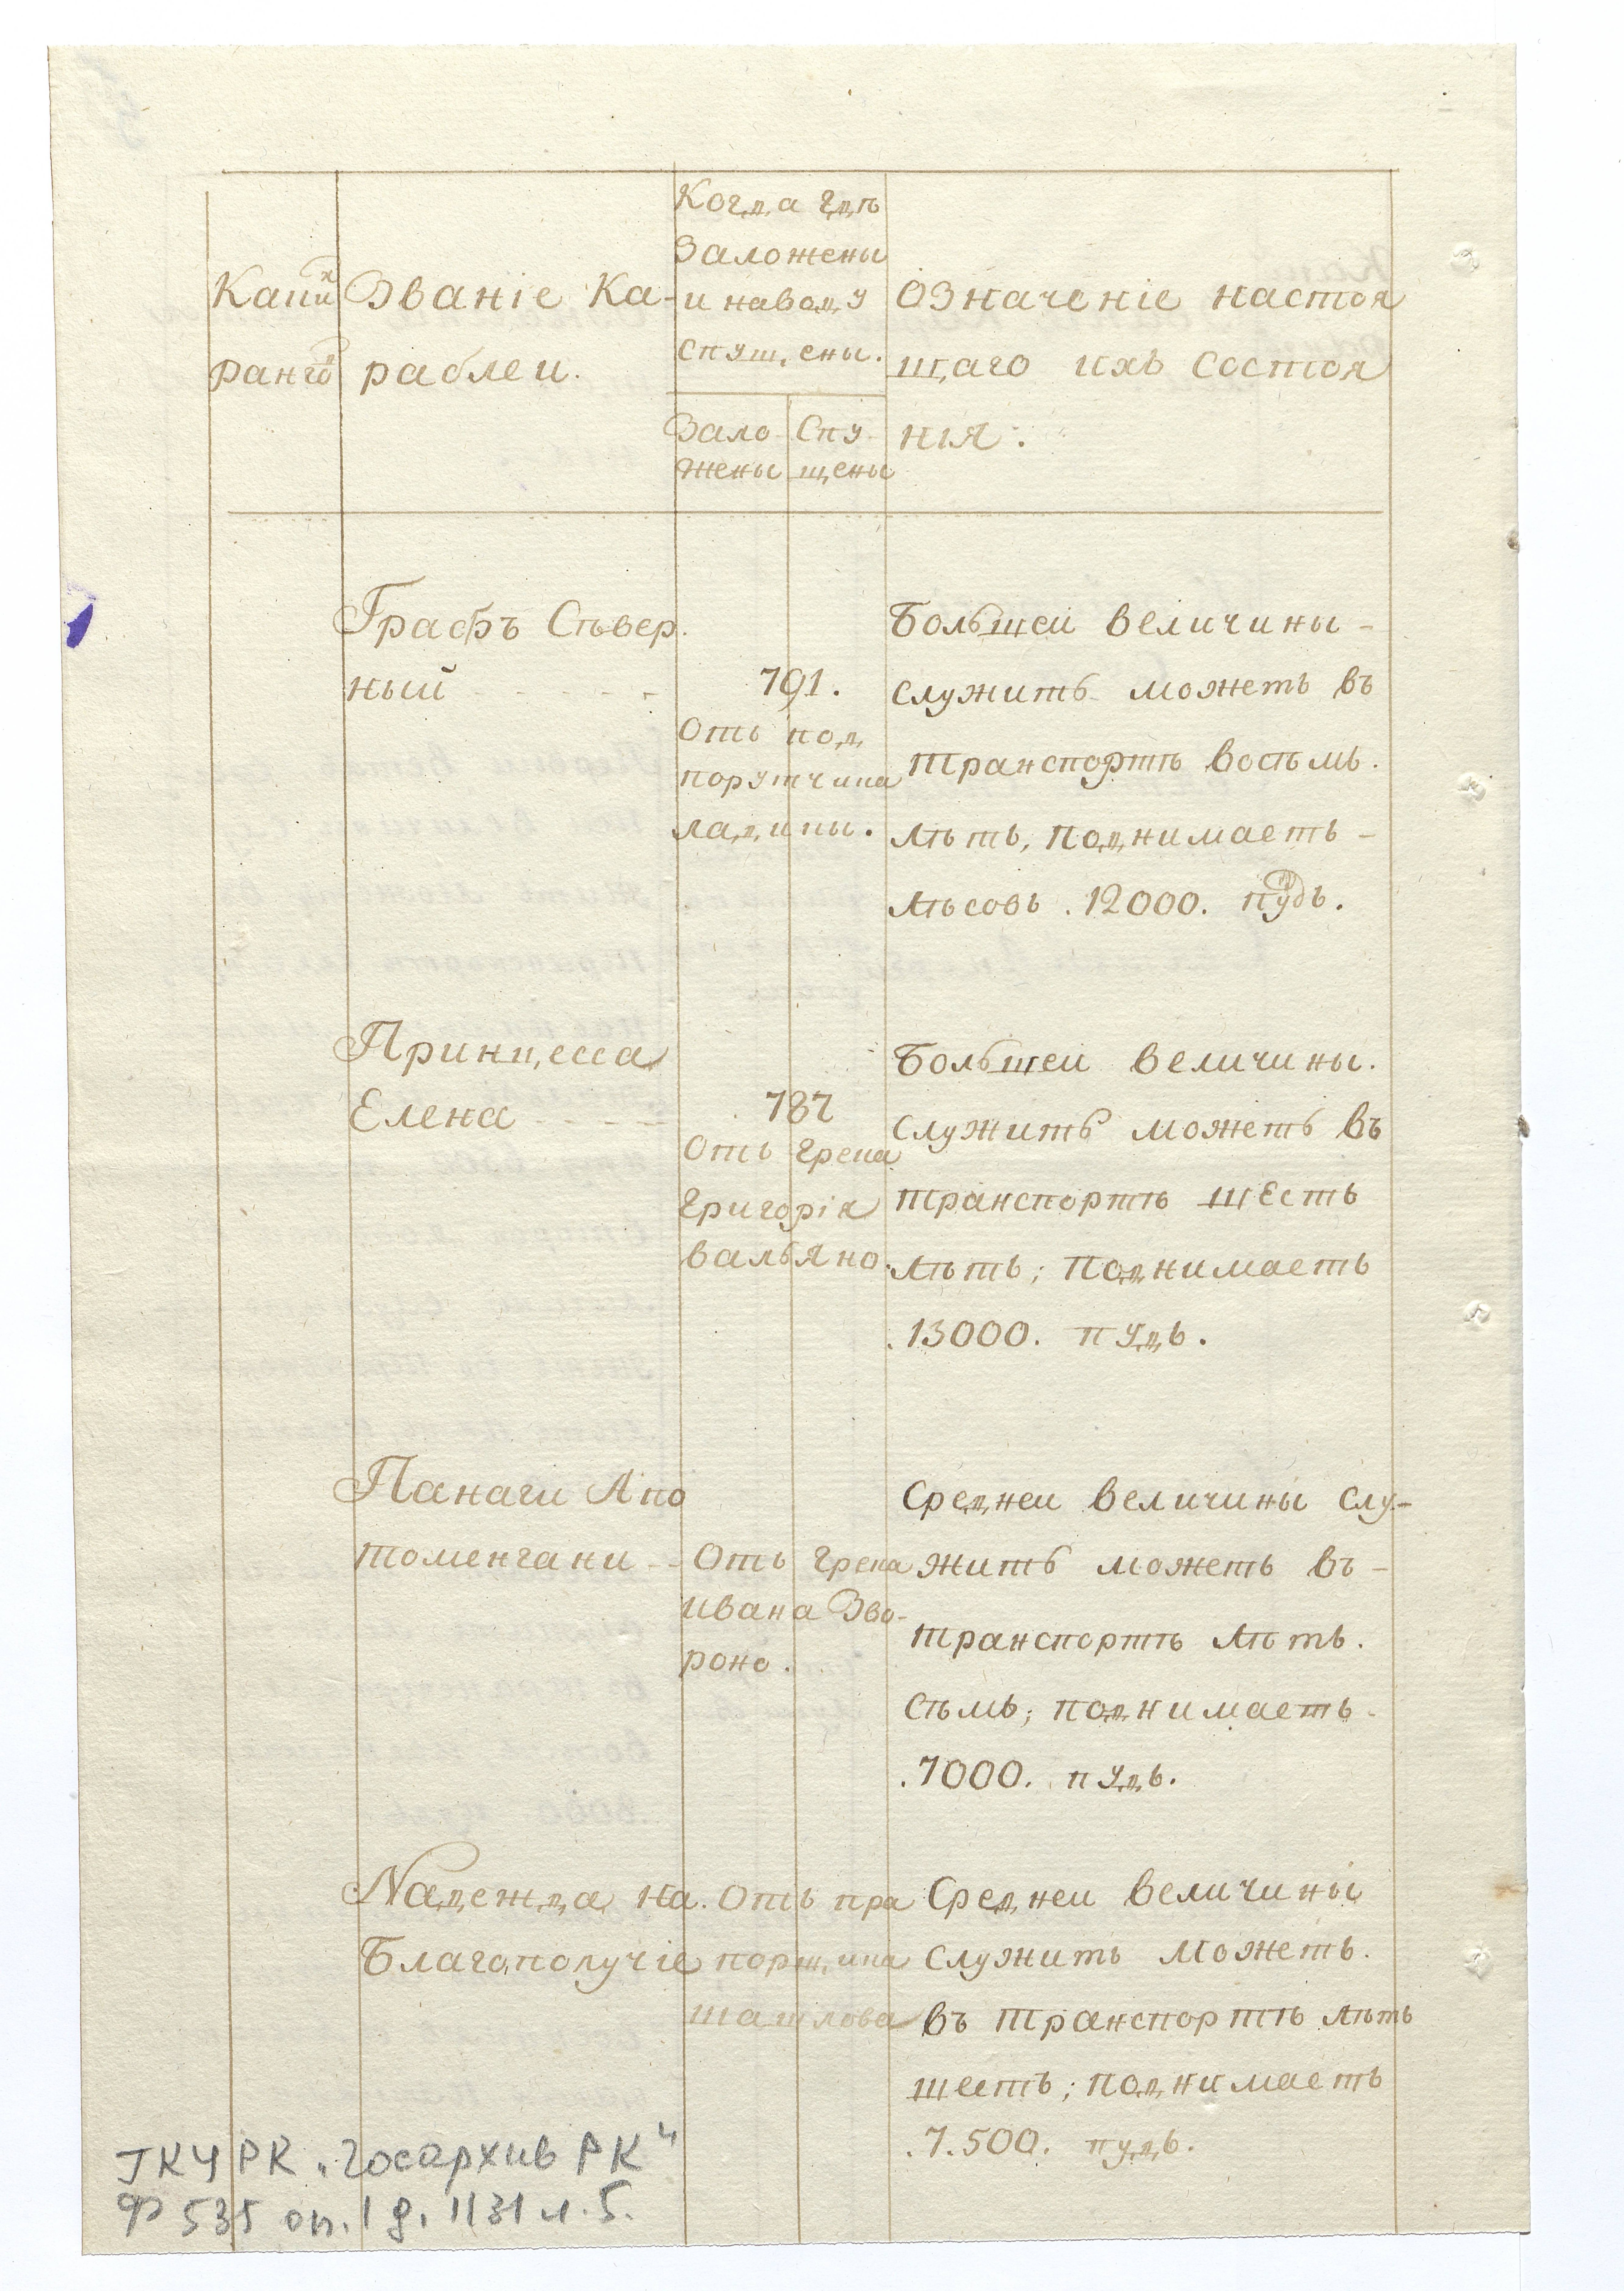 Какихъ
ранговъ
Званіе Ка-
раблеи.
Когда гдѣ
заложены
и наводу
спущены.
Зало-
жены
Спу-
щены
Означеніе настоя
щаго ихъ состоя
нія:
Графъ Сѣвер.
ный
791.
Отъ под
порутчика
ладины.
Большеи величины -
служить можетъ въ
транспортѣ восѣмь.
лѣтъ, поднимаетъ -
лѣсовъ .12000. пудъ.
Принцесса
Елена
787
Отъ грека
Григорія
вальяно.
Большеи величины.
служить можетъ въ
транспортѣ шесть
лѣтъ; поднимаетъ
.13000. пудъ.
Панаги Апо
томенгани
Отъ грека
ивана Зво-
роно.
Среднеи величины слу-
жить можетъ въ -
транспортѣ лѣтъ.
сѣмь; поднимаетъ.
.7000. пудъ.
Надежда на.
Благополучіе
Отъ пра
порщика
шатлова
Среднеи величины
служить можетъ.
въ транспортѣ лѣтъ
шесть; поднимаетъ
.7.500. пудъ.
ГКУ РК „Госархив РК"
Ф 535 оп. 1 д. 1131 л. 5.